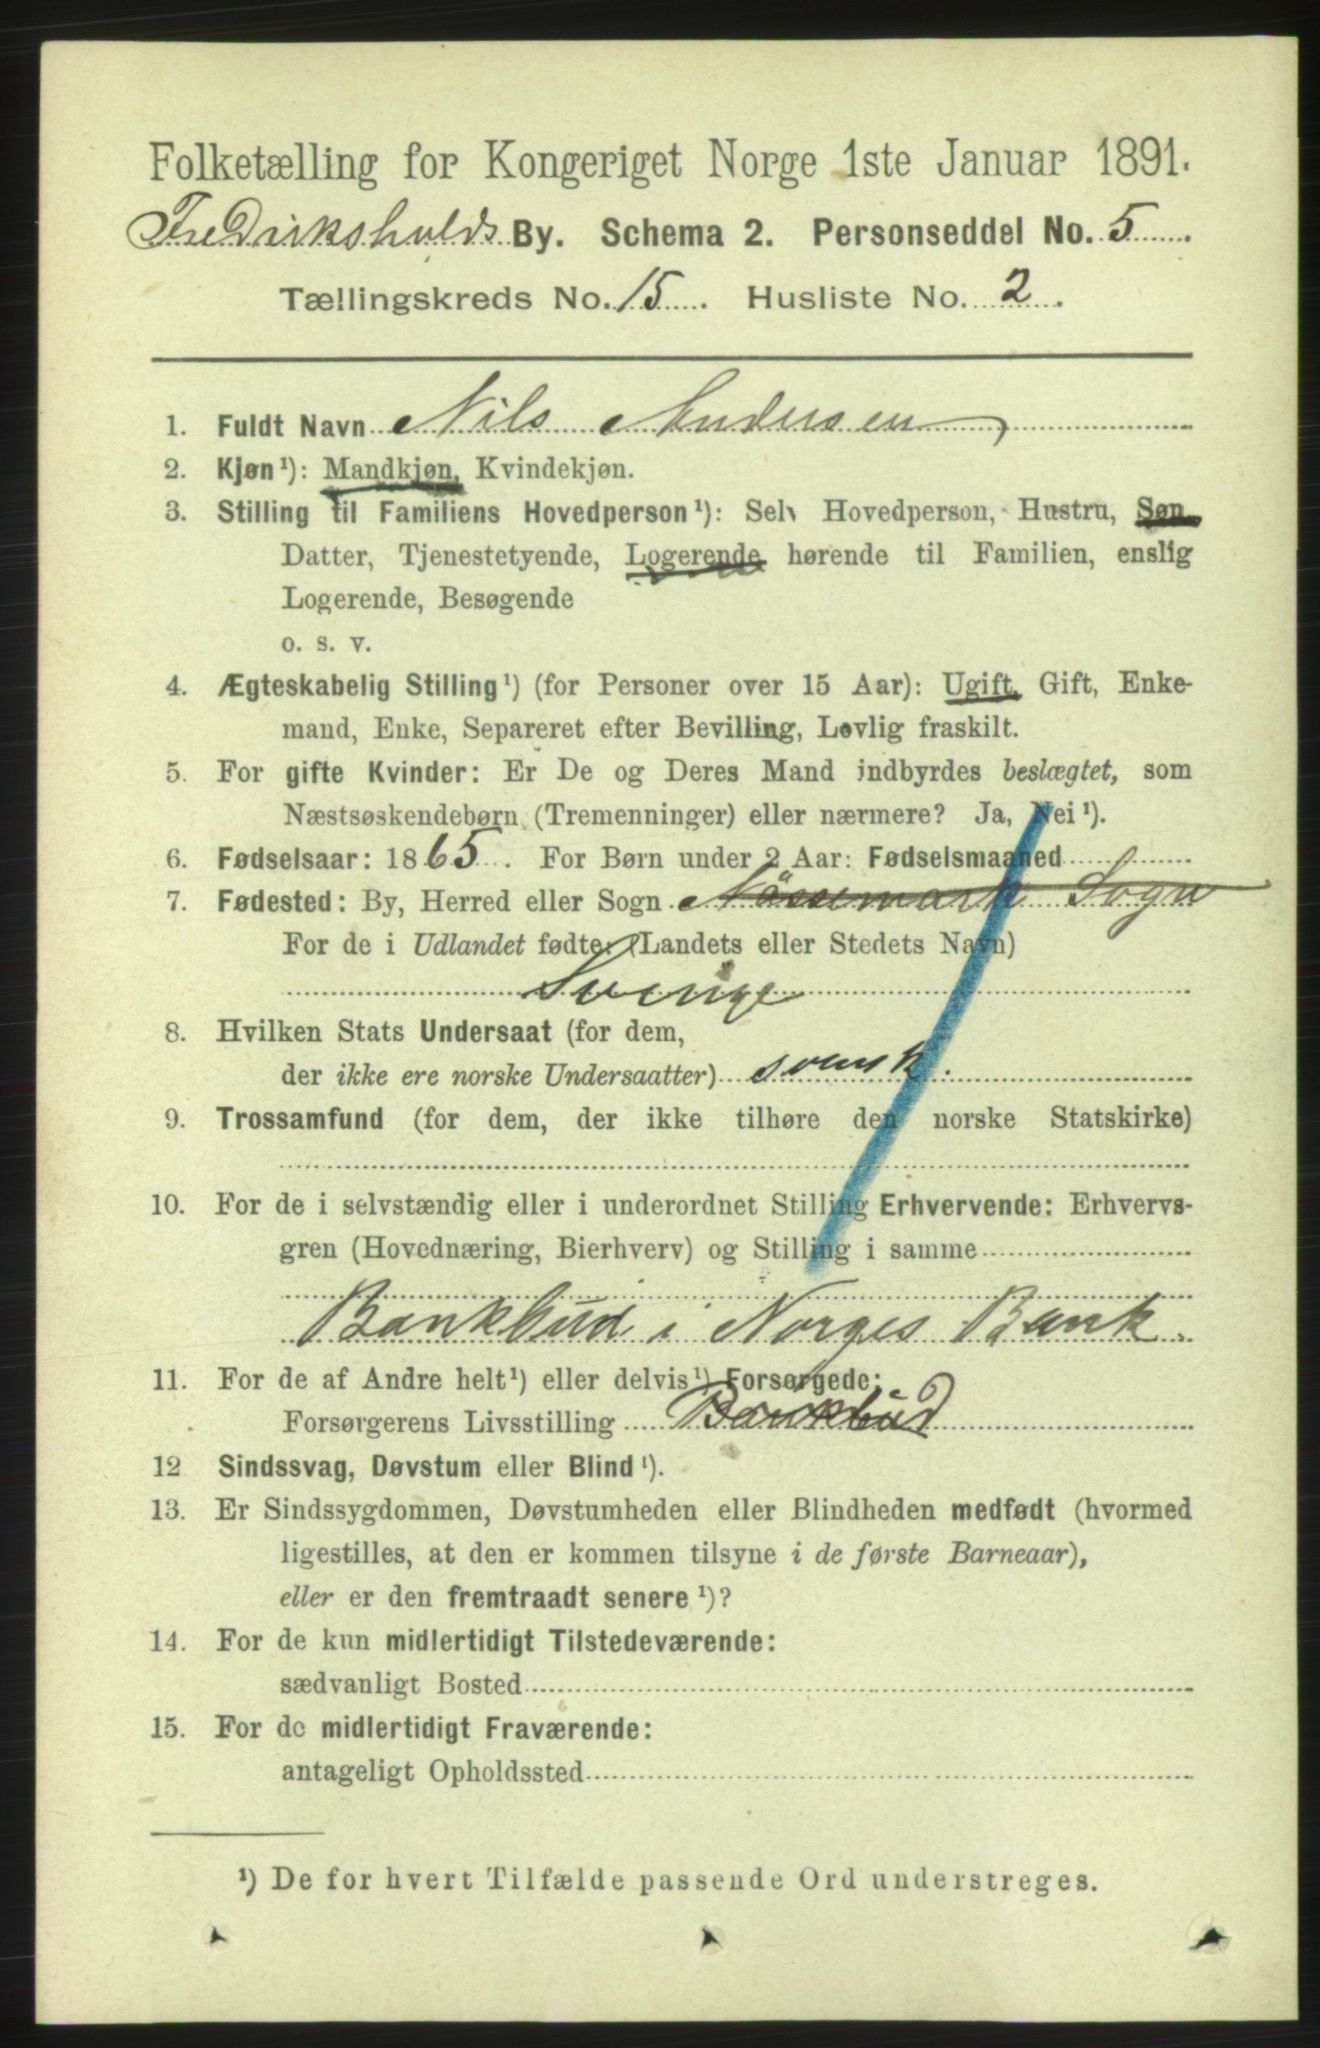 Folketælling for Kongeriget Norge 1ste Januar 1891.
Fredriksholds By. Schema 2. Personseddel No. 5
Tællingskreds No. 15. Husliste No. 2.
1. Fuldt Navn Nils Andersen
2. Kjøn¹): Mandkjøn, Kvindekjøn.
3. Stilling til Familiens Hovedperson¹): Selv Hovedperson, Hustru, Søn,
Datter, Tjenestetyende, Logerende hørende til Familien, enslig
Logerende, Besøgende
o. s. v.
4. Ægteskabelig Stilling¹) (for Personer over 15 Aar): Ugift, Gift, Enke-
mand, Enke, Separeret efter Bevilling, Lovlig fraskilt.
5. For gifte Kvinder: Er De og Deres Mand indbyrdes beslægtet, som
Næstsøskendebørn (Tremenninger) eller nærmere? Ja, Nei¹).
6. Fødselsaar: 1865. For Børn under 2 Aar: Fødselsmaaned
7. Fødested: By, Herred eller Sogn Nössemark Sogn
For de i Udlandet fødte: (Landets eller Stedets Navn)
Sverige
8. Hvilken Stats Undersaat (for dem,
der ikke ere norske Undersaatter) svensk.
9. Trossamfund (for dem, der ikke tilhøre den norske Statskirke)
10. For de i selvstændig eller i underordnet Stilling Erhvervende: Erhvervs-
gren (Hovednæring, Bierhverv) og Stilling i samme
Bankbud i Norges Bank.
11. For de af Andre helt¹) eller delvis¹) Forsørgede:
Forsørgerens Livsstilling Bankbud
12 Sindssvag, Døvstum eller Blind¹).
13. Er Sindssygdommen, Døvstumheden eller Blindheden medfødt (hvormed
ligestilles, at den er kommen tilsyne i de første Barneaar),
eller er den fremtraadt senere¹)?
14. For de kun midlertidigt Tilstedeværende:
sædvanligt Bosted
15. For de midlertidigt Fraværende:
antageligt Opholdssted
¹) De for hvert Tilfælde passende Ord understreges.